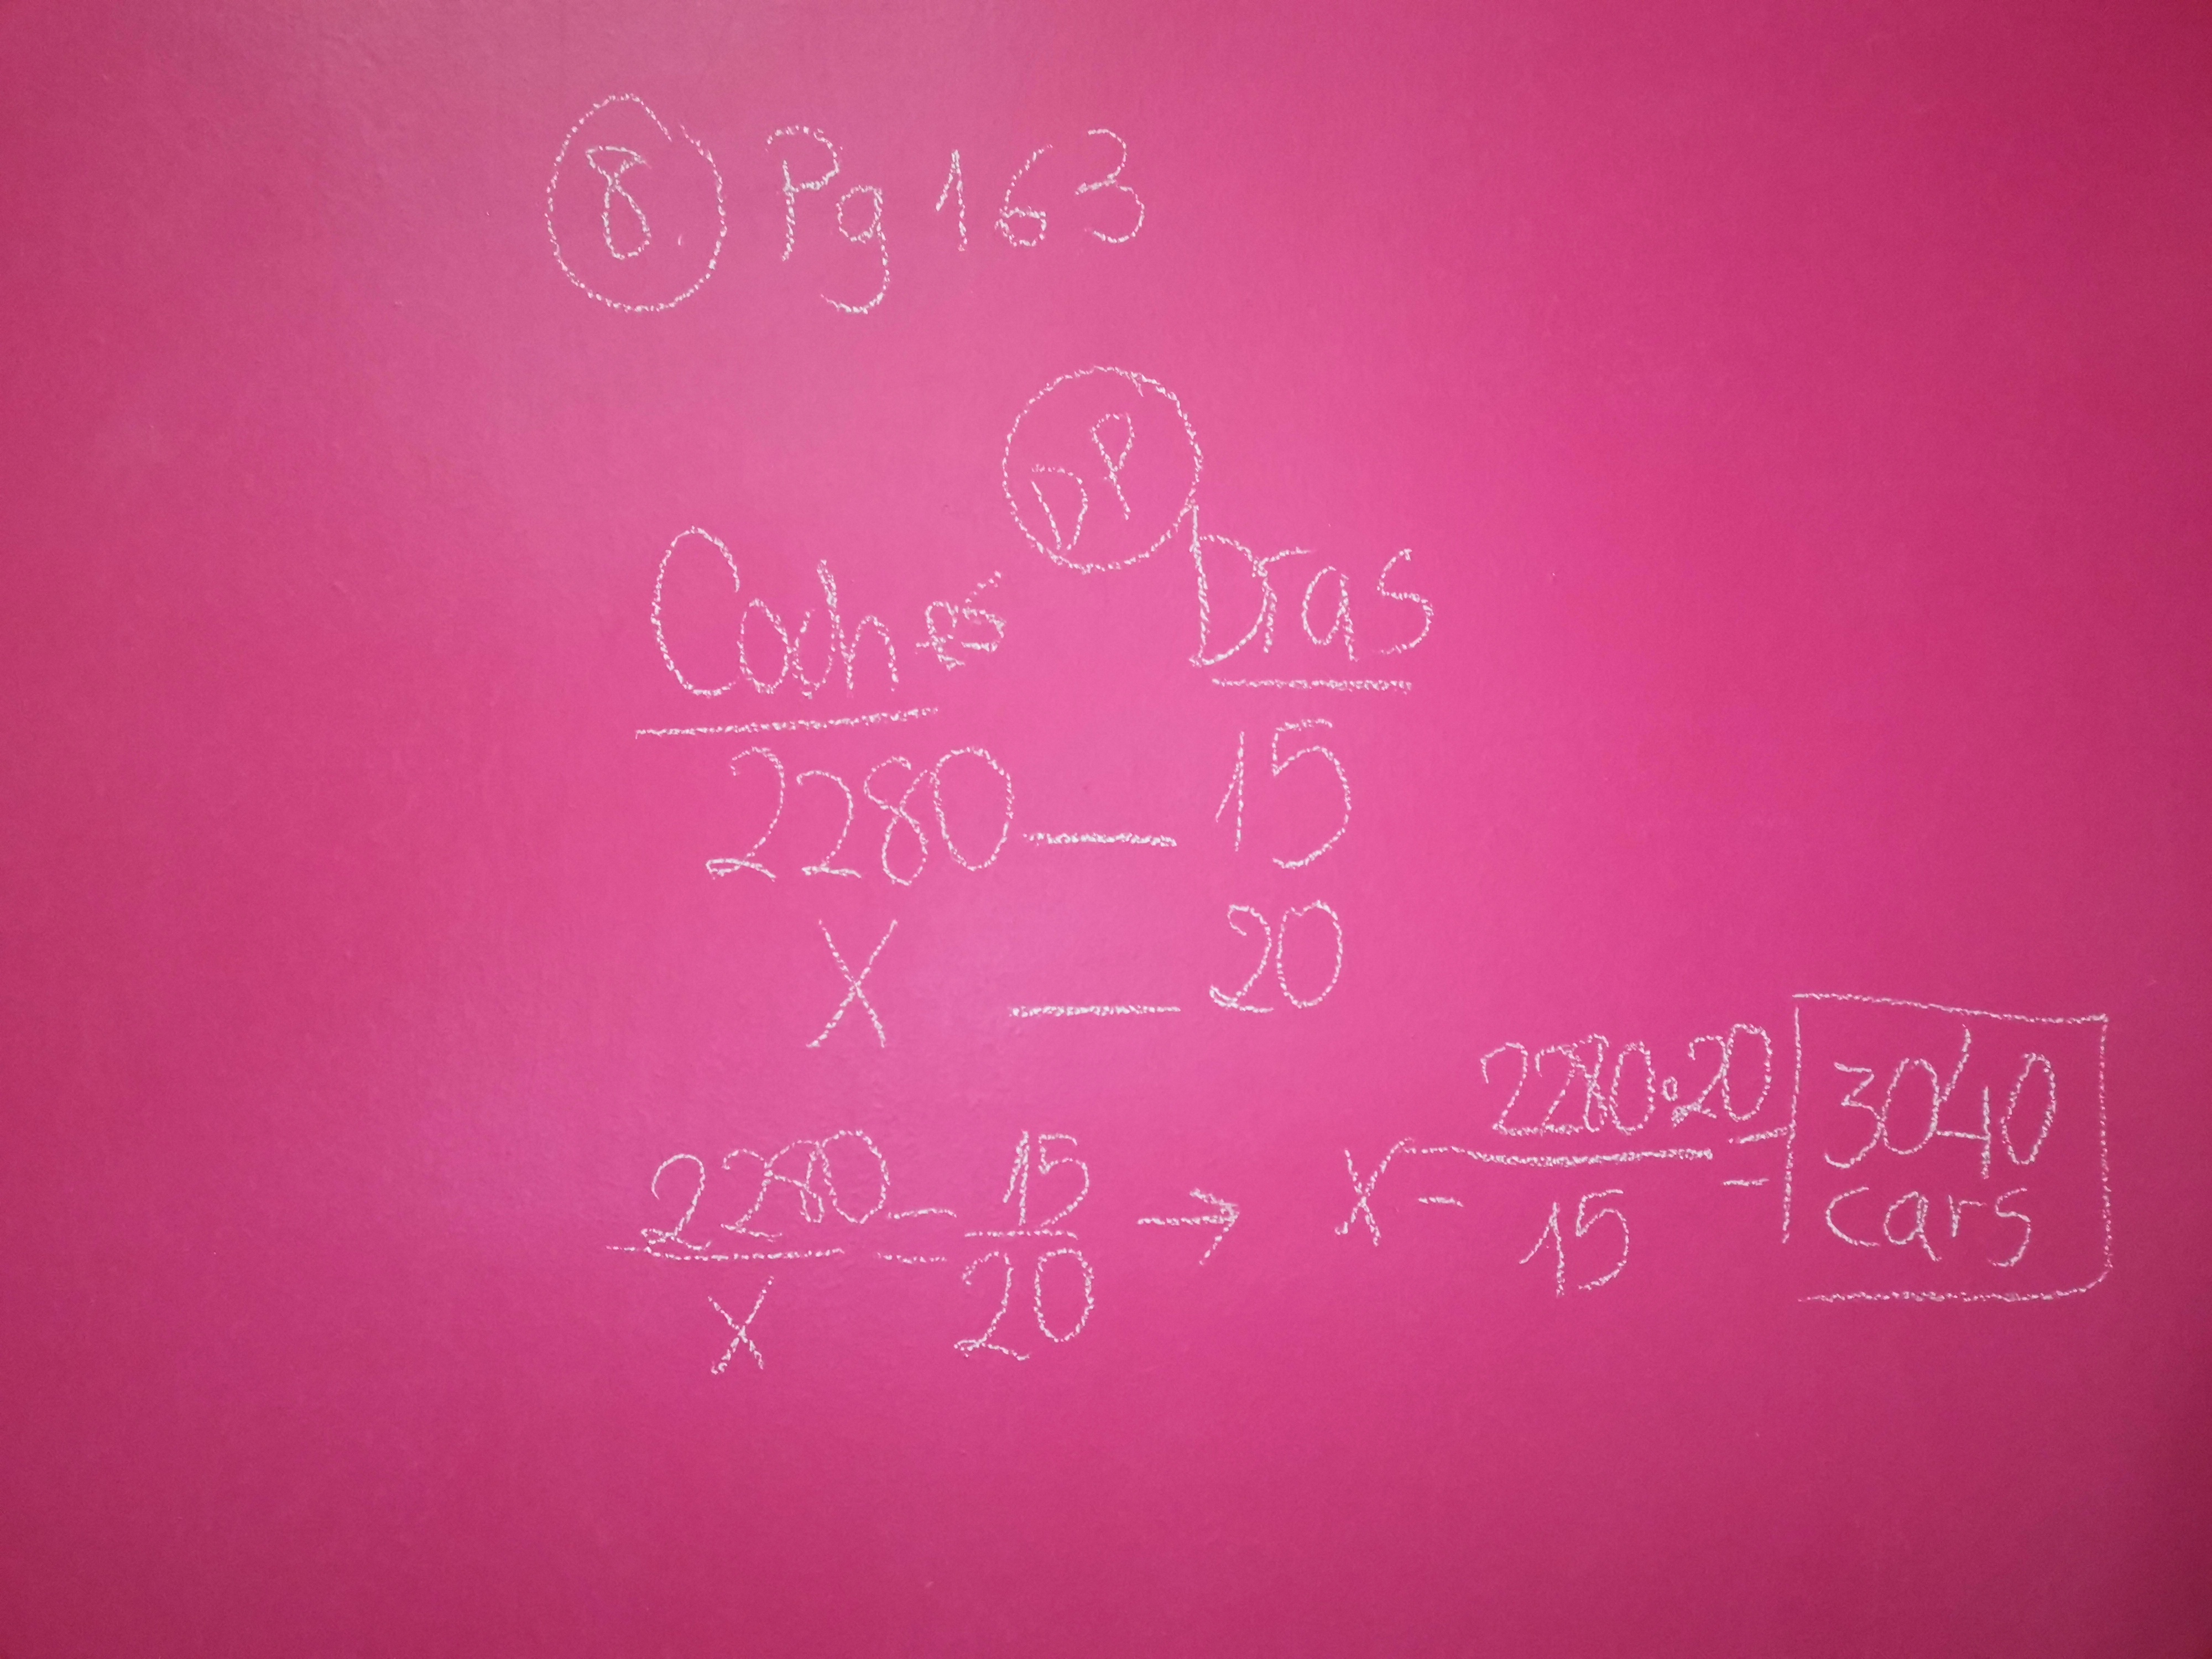 8 Pg 163
DP
Coches Días
2280 — 15
X — 20
2280/X = 15/20 → X = 2280·20/15 = 3040 cars